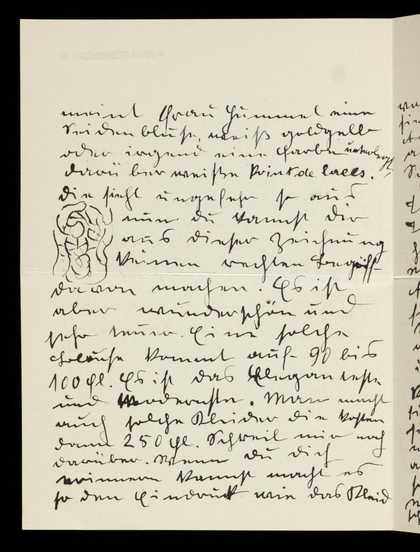 meint Frau Hummel eine
Seidenbluse, weiß goldgelb
oder irgend eine Farbe unterlegt
darüber weiße Point de lacés.
die sieht ungefehr so aus
nun du kannst dir
aus dieser Zeichnung
keinen rechten Begriff
davon machen. Es ist
aber wunderschön und
sehr teuer. Eine solche
Blouse kommt auf 90 bis
100 fl. Es ist das Eleganteste
und Modernste. Man macht
auch solche Kleider die kosten
dann 250 fl. Schreib mir noch
darüber. Wenn du dich
erinnern kannst macht es
so den Eindruck wie das Kleid